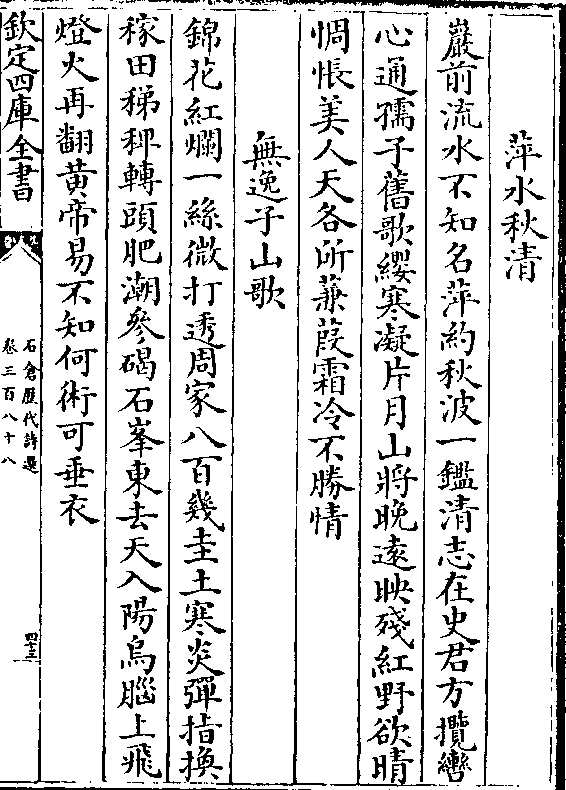 萍水秋清
巖前流水不知名萍約秋波一鑑清志在史君方攬轡
心通孺子舊歌纓寒凝片月山將晚遠映殘紅野欲晴
惆悵美人天各所蒹葭霜冷不勝情
無逸子山歌
錦花紅爛一絲微打透周家八百幾圭土寒炎彈指換
稼田稊稗轉頭肥潮參碣石峯東去天入陽烏腦上飛
燈火再翻黄帝易不知何術可垂衣
欽定四庫全書
石倉歷代詩選
卷三百八十八
四十三